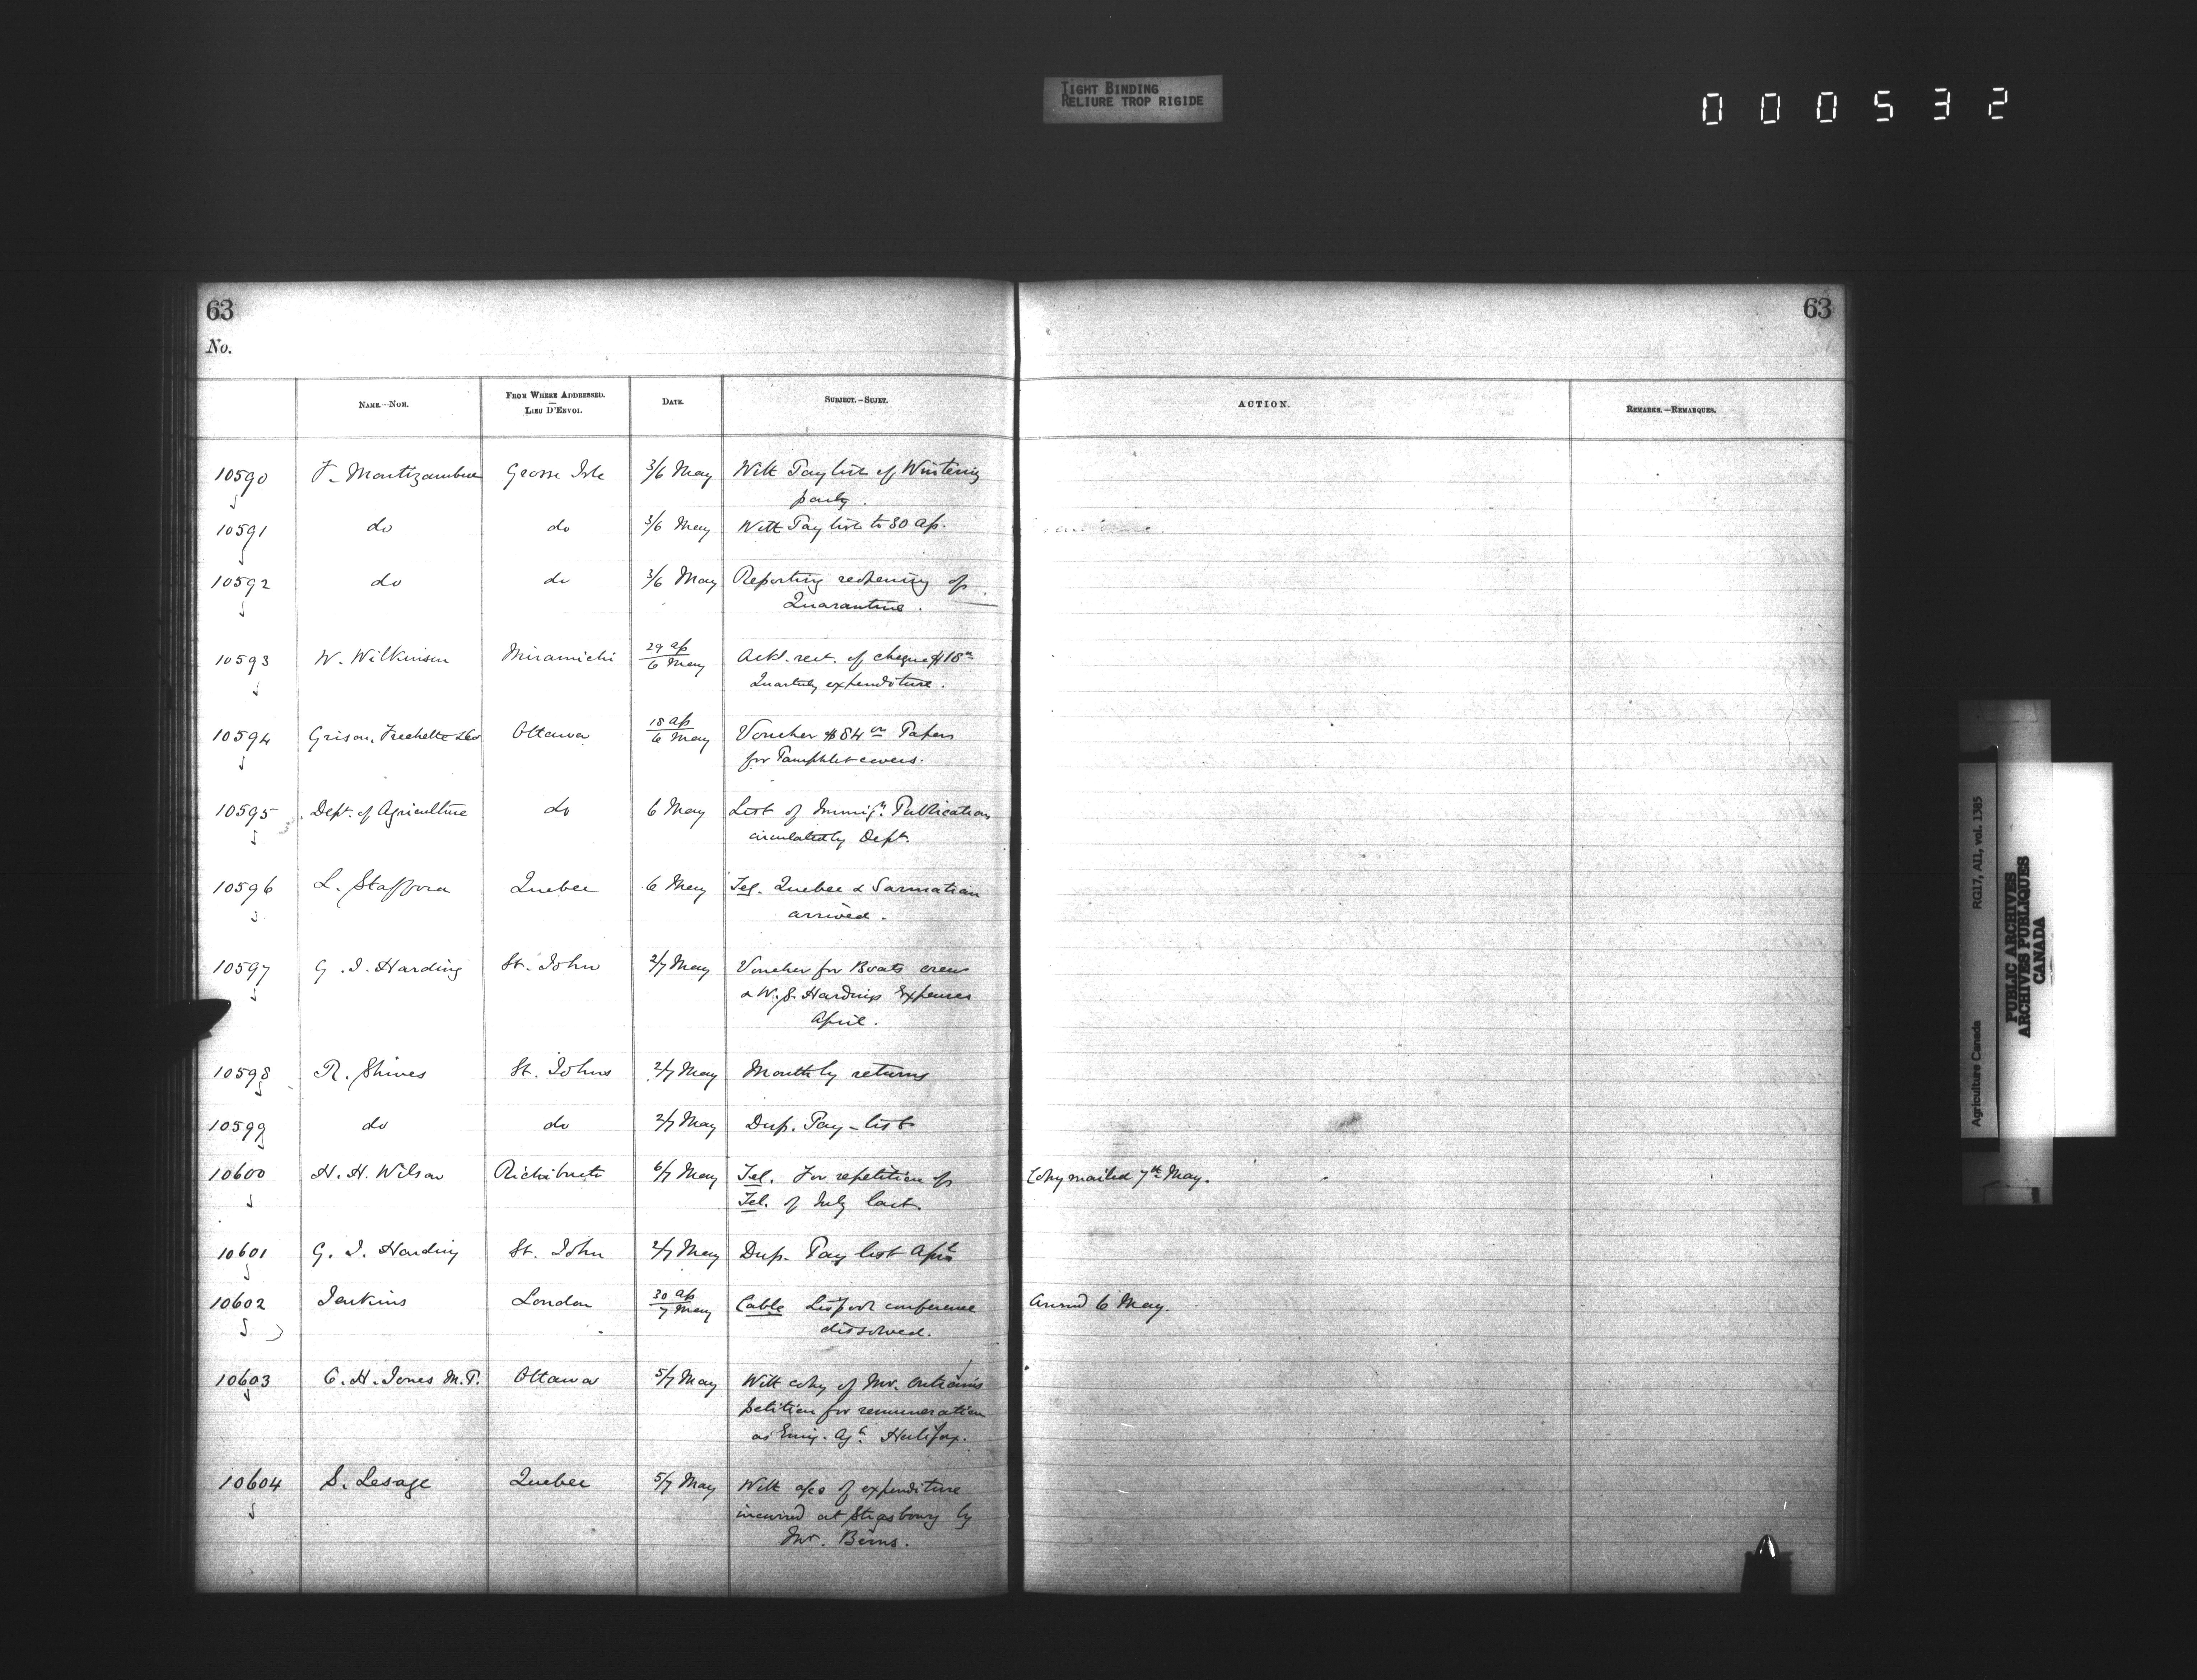 TIGHT BINDING
RELIURE TROP RIGIDE
000532
63
63
No.
NAME.—NOM.
FROM WHERE ADDRESSED.
LIEU D'ENVOI.
DATE.
SUBJECT.—SUJET.
ACTION.
REMARKS.—REMARQUES.
10590 F. Montizambert Grosse Isle 3/6 May With Paylist of Wintering
party.
10591 do do 3/6 May With Paylist to 30 ap.
10592 do do 3/6 May Reporting reopening of
Quarantine.
10593 W. Wilkinson Miramichi 29 ap/6 May Ackl. rect. of cheque $18
Quarterly expenditure.
10594 Grison, Frechette & Co Ottawa 18 ap/6 May Voucher $84 00 Papers
for Pamphlet covers.
10595 Dept. of Agriculture do 6 May List of Immign. Publications
circulated by Dept.
10596 L. Stafford Quebec 6 May Tel. Quebec & Sarmatian
arrived.
10597 G. J. Harding St. John 2/7 May Voucher for Boats crew
& W. S. Hardings Expenses
April.
10598 R. Shives St. Johns 2/7 May Monthly returns
10599 do do 2/7 May Dup. Pay-list
10600 H. H. Wilson Richibucto 6/7 May Tel. For repetition of Copy mailed 7th May.
Tel. of July last.
10601 G. J. Harding St. John 2/7 May Dup. Pay list Apl.
10602 Jenkins London 30 ap/7 May Cable Lispool conference 6 May.
dissolved.
10603 C. H. Jones M.P. Ottawa 5/7 May With copy of Mr.
petition for remuneration
as Emig. Agt. Halifax.
10604 S. Lesage Quebec 5/7 May With a/co of expenditure
incurred at Strasbourg by
Mr.
Agriculture Canada RG17, AII, vol. 1385
PUBLIC ARCHIVES
ARCHIVES PUBLIQUES
CANADA